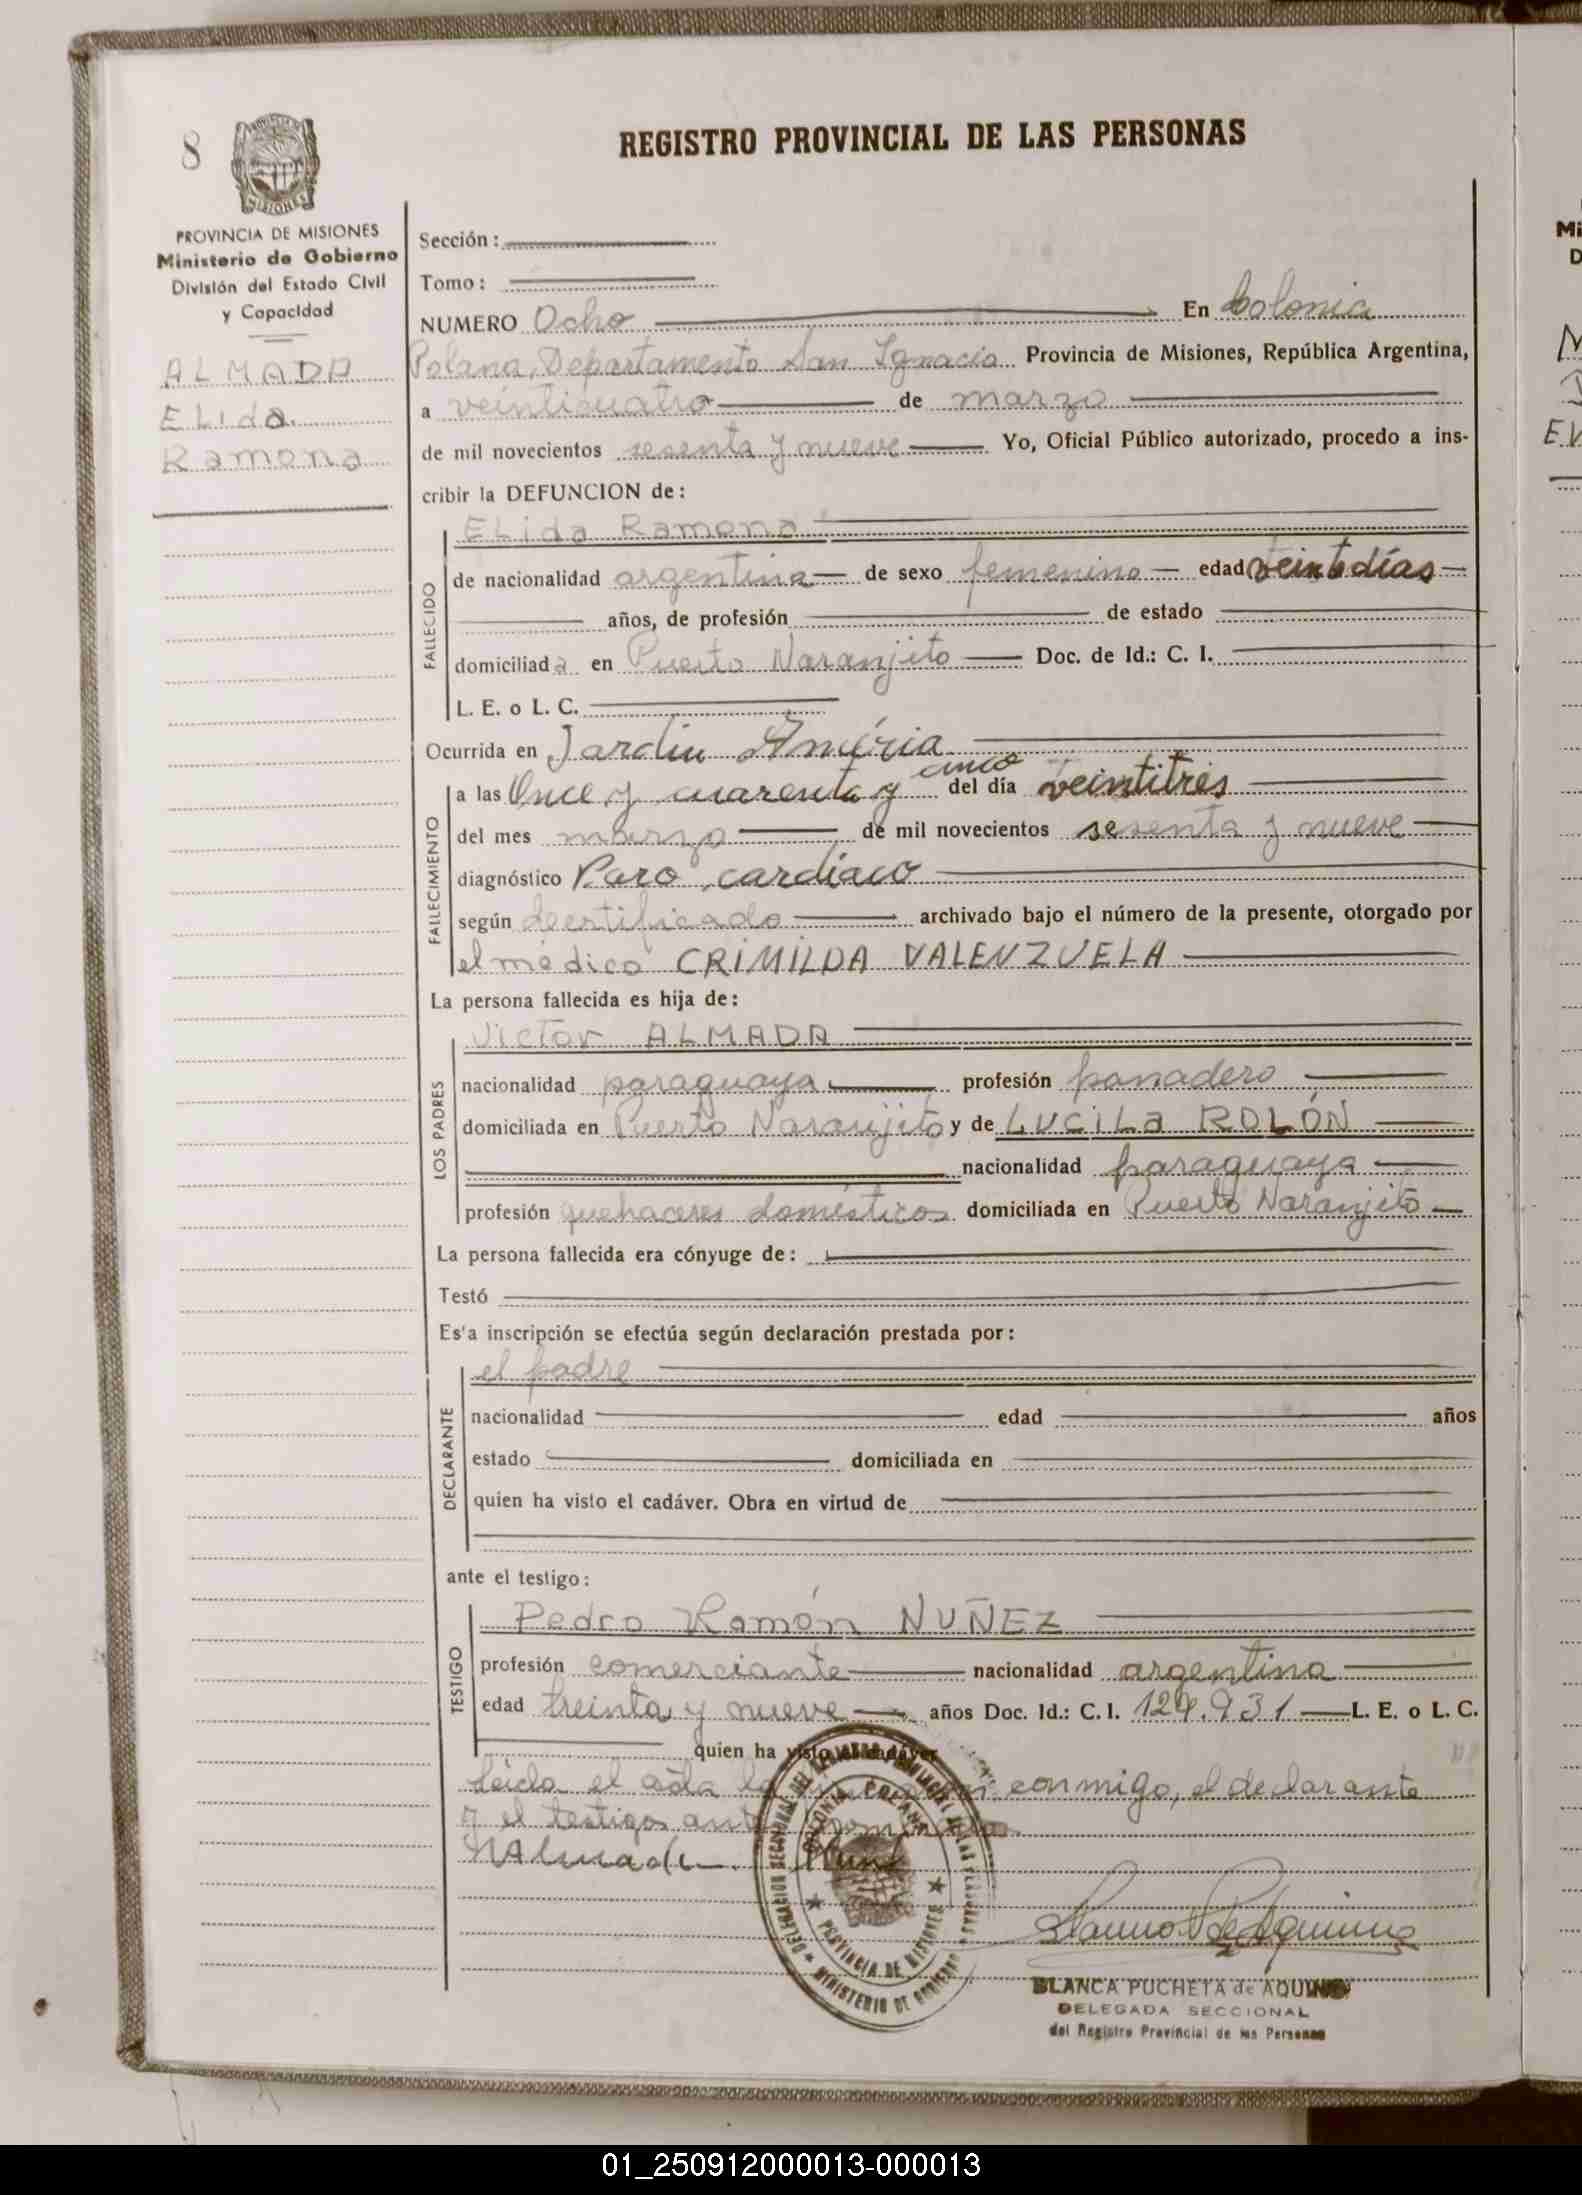 8
PROVINCIA DE MISIONES
REGISTRO PROVINCIAL DE LAS PERSONAS
PROVINCIA DE MISIONES
Ministerio de Gobierno
División del Estado Civil
y Capacidad
ALMADA
ELIda
Ramona
Sección:
Tomo:
NUMERO Ocho En Colonia
Polana, Departamento San Ignacio Provincia de Misiones, República Argentina,
a veinticuatro de marzo
de mil novecientos sesenta y nueve Yo, Oficial Público autorizado, procedo a ins-
cribir la DEFUNCION de:
FALLECIDO
ELida Ramona
de nacionalidad argentina de sexo femenino edad veinte días
años, de profesión de estado
domiciliada en Puerto Naranjito Doc. de Id.: C. I.
L. E. o L. C.
Ocurrida en Jardín América
FALLECIMIENTO
a las Once y cuarenta y cinco del día veintitrés
del mes marzo de mil novecientos sesenta y nueve
diagnóstico Paro cardíaco
según certificado archivado bajo el número de la presente, otorgado por
el médico CRIMILDA VALENZUELA
La persona fallecida es hija de:
LOS PADRES
Victor ALMADA
nacionalidad paraguaya profesión panadero
domiciliada en Puerto Naranjito y de LUCiLa ROLÓN
nacionalidad paraguaya
profesión quehaceres domésticos domiciliada en Puerto Naranjito
La persona fallecida era cónyuge de:
Testó
Es'a inscripción se efectúa según declaración prestada por:
DECLARANTE
el padre
nacionalidad edad años
estado domiciliada en
quien ha visto el cadáver. Obra en virtud de
ante el testigo:
TESTIGO
Pedro Ramón NUÑEZ
profesión comerciante nacionalidad argentina
edad treinta y nueve años Doc. Id.: C. I. 124.931 L. E. o L. C.
quien ha visto el cadáver
Leída el acta la conmigo, el declarante
y el testigo
VAlmada
DELEGACION SECCIONAL DEL REGISTRO PROVINCIAL DE LAS PERSONAS
COLONIA POLANA
PROVINCIA DE MISIONES
MINISTERIO DE GOBIERNO
BLANCA PUCHETA de AQUINO
DELEGADA SECCIONAL
del Registro Provincial de las Personas
01_250912000013-000013